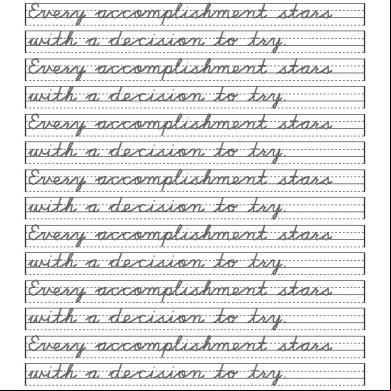 Every accomplishment stars
with a decision to try.
Every accomplishment stars
with a decision to try.
Every accomplishment stars
with a decision to try.
Every accomplishment stars
with a decision to try.
Every accomplishment stars
with a decision to try.
Every accomplishment stars
with a decision to try.
Every accomplishment stars
with a decision to try.